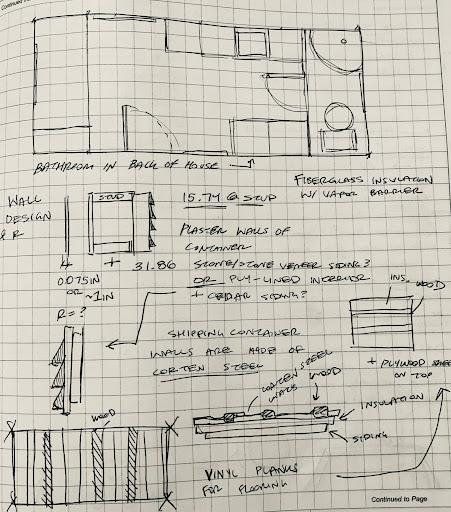 Continued
BATHROOM IN BACK OF HOUSE →
FIBERGLASS INSULATION
W/ VAPOR BARRIER
WALL
DESIGN
& R
STUD
15.74 @ STUD
PLASTER WALLS OF
CONTAINER
+ 31.86
STONE/STONE VENEER SIDING?
OR PLY-LINED INTERIOR
+ CEDAR SIDING?
0.075IN
OR ~1IN
R = ?
INS.
WOOD
+ PLYWOOD
ON TOP
SHIPPING CONTAINER
WALLS ARE MADE OF
CORTEN STEEL
CORTEN STEEL
WALLS
WOOD
INSULATION
SIDING
WOOD
VINYL PLANKS
FOR FLOORING
Continued to Page